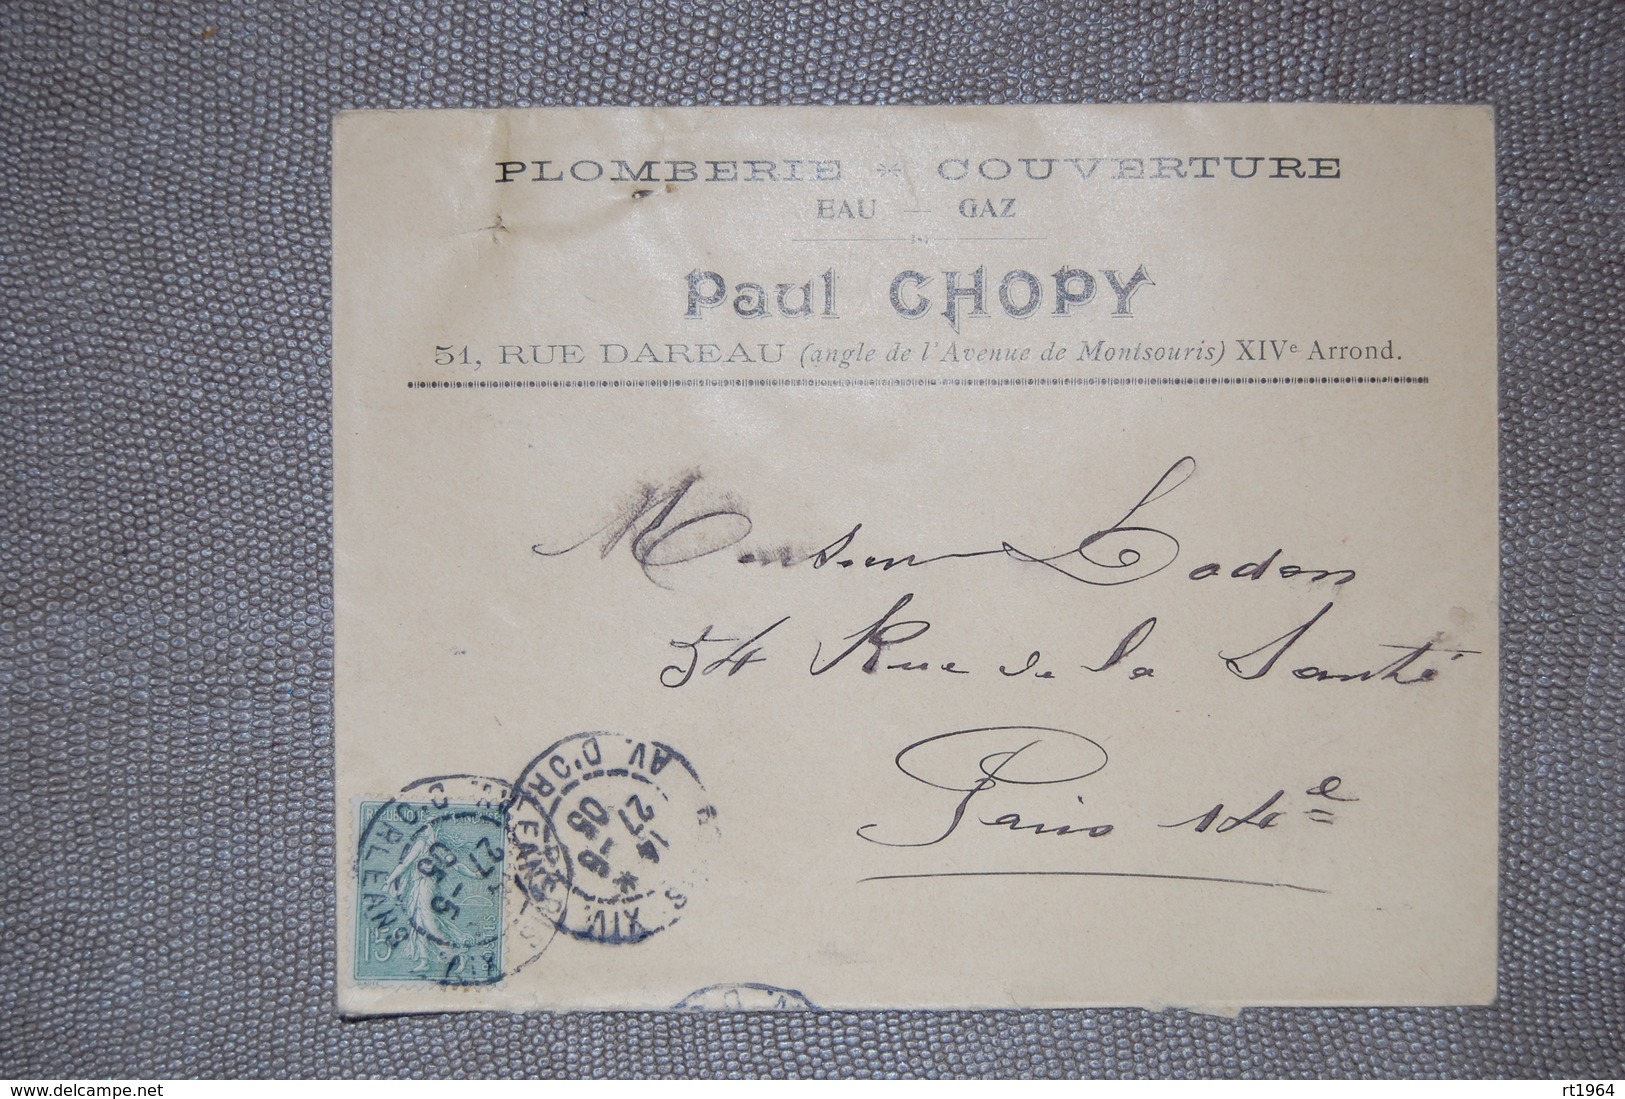 PLOMBERIE * COUVERTURE
EAU — GAZ
Paul CHOPY
51, RUE DAREAU (angle de l'Avenue de Montsouris) XIVe Arrond.
Monsieur Lodon
54 Rue de la Santé
Paris 14e
AV. D'ORLEANS
27 -5
05
XIV
REPUBLIQUE FRANÇAISE
POSTES
15
ORLEANS
27 -5
05
www.delcampe.net
rt1964